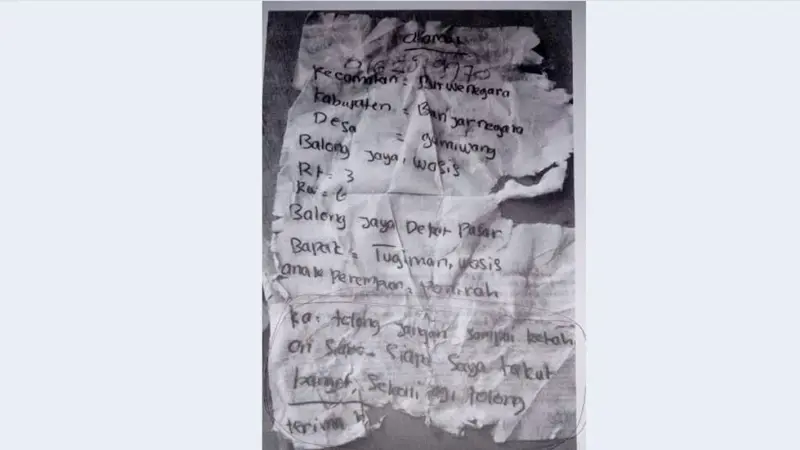 alamat
Kecamatan = Purwenegara
Kabupaten = Banjarnegara
Desa = gumiwang
Balong jaya, wasis
Rt = 3
Rw = 6
Balong jaya Dekat Pasar
Bapak = Tugiman, wasis
anak perempuan
Ka. tolong jangan sampai ketah
ori siapa-siapa saya takut
banget, Sekali lagi tolong
terima